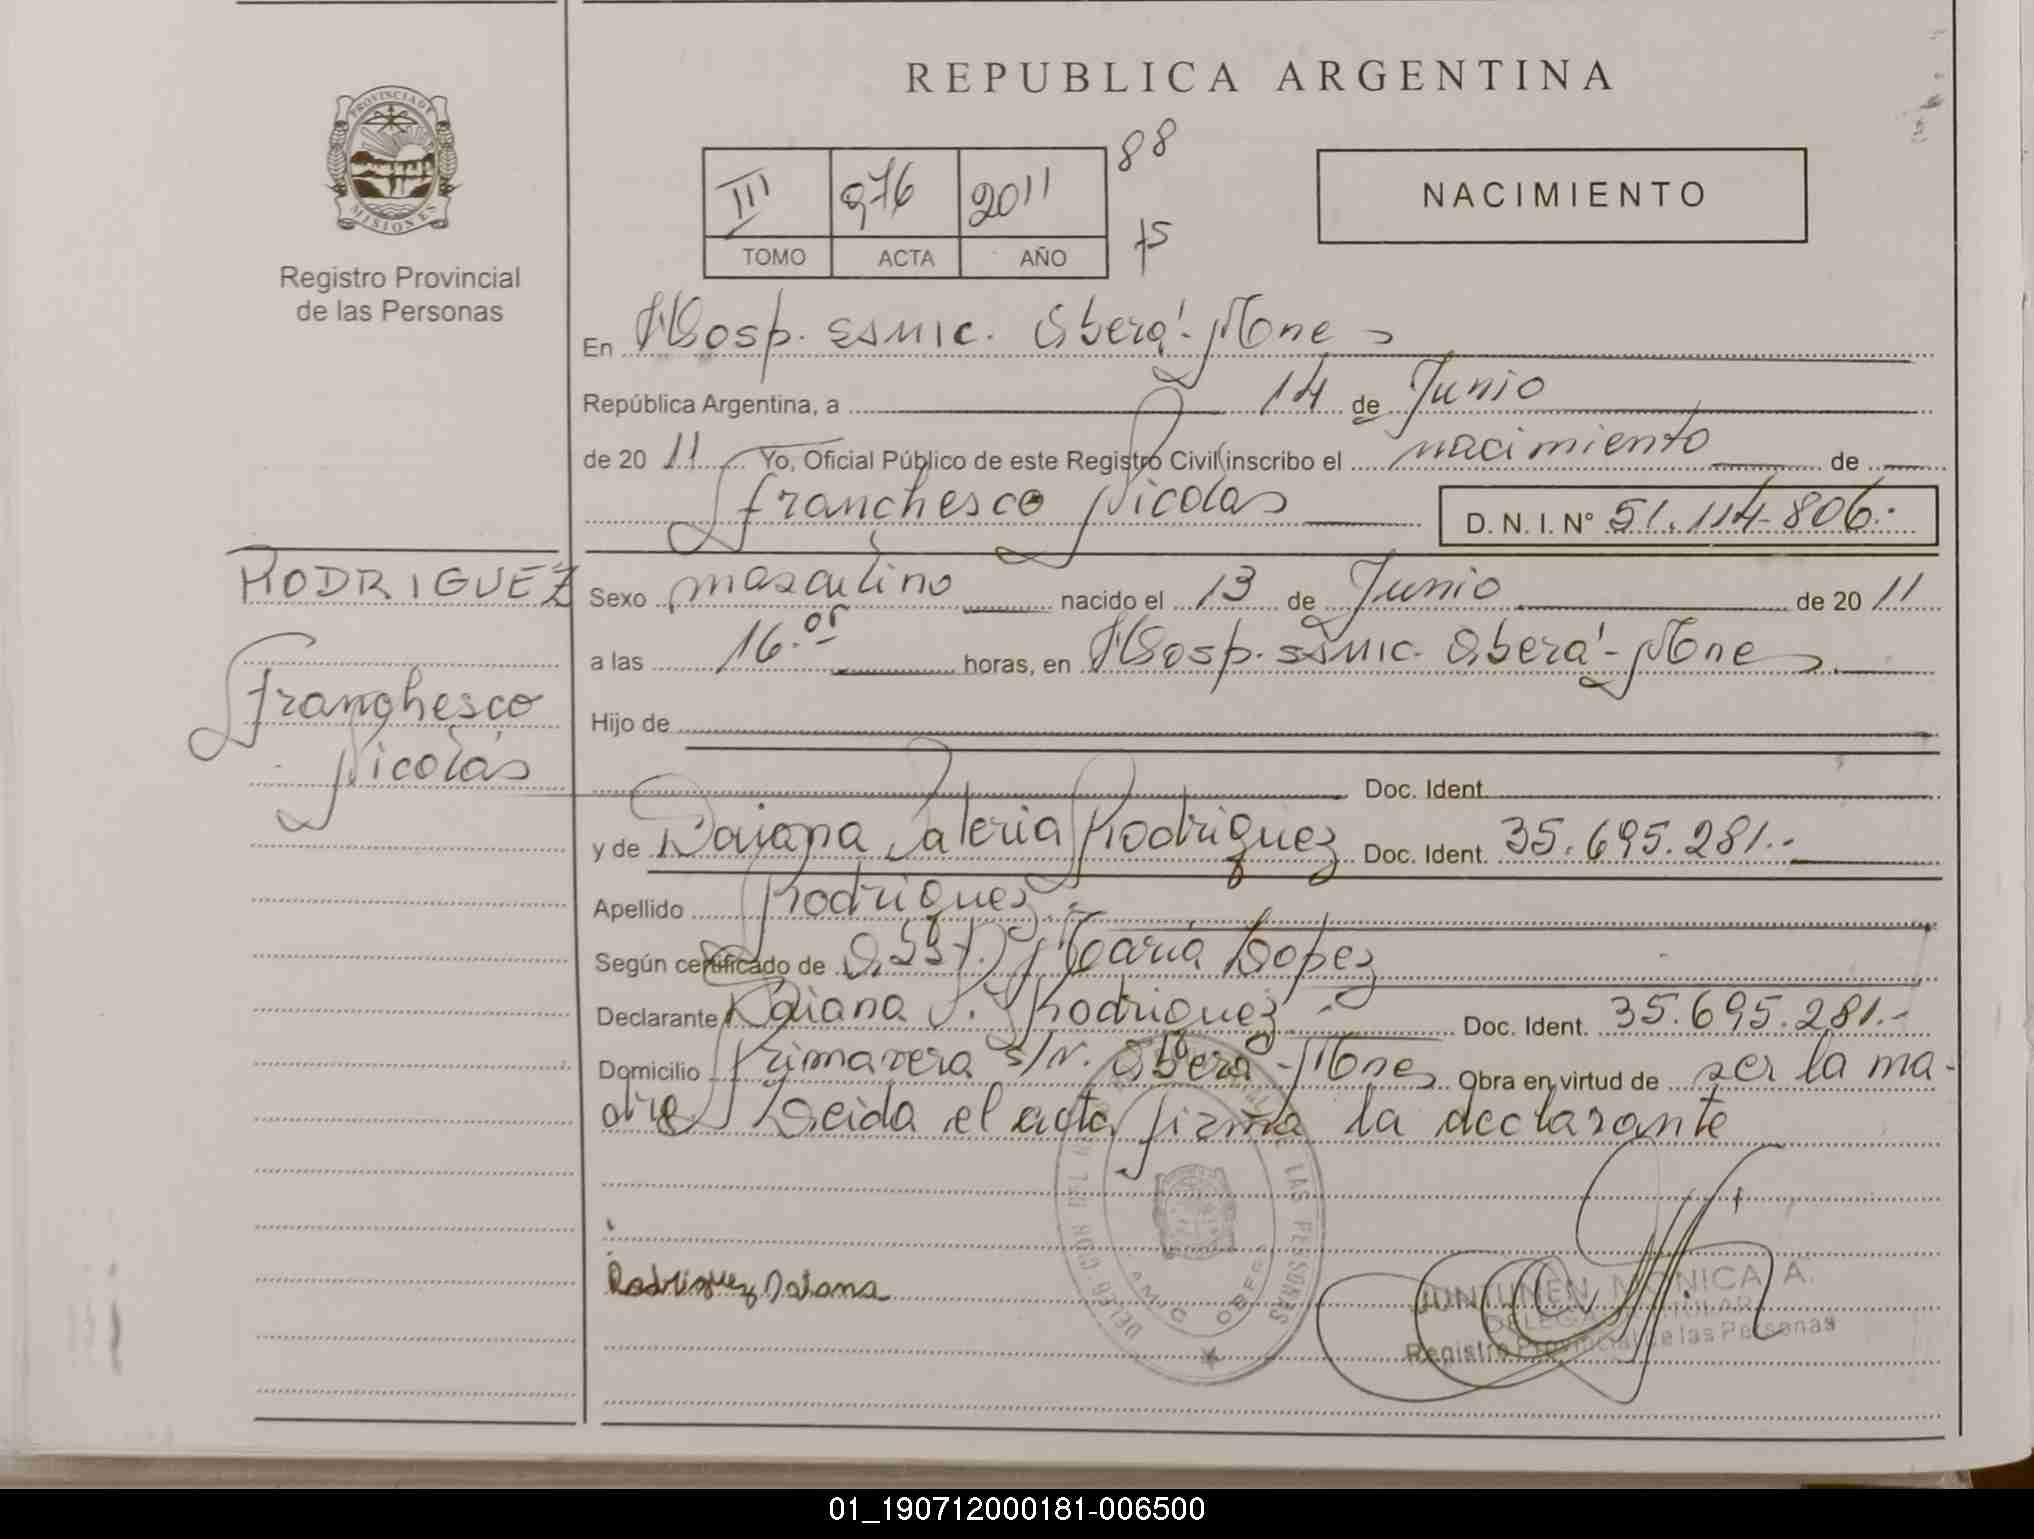 REPUBLICA ARGENTINA
PROVINCIA DE
MISIONES
Registro Provincial
de las Personas
III 976 2011 88
TOMO ACTA AÑO 75
NACIMIENTO
En Hosp. SSMIC. Oberá - Mnes
República Argentina, a 14 de Junio
de 20 11 Yo, Oficial Público de este Registro Civil inscribo el nacimiento de
Franchesco Nicolas D. N. I. Nº 51.114.806.-
RODRIGUEZ
Franchesco
Nicolás
Sexo masculino nacido el 13 de Junio de 20 11
a las 16.05 horas, en Hosp. SSMIC. Oberá - Mnes.
Hijo de
Doc. Ident.
y de Daiana Valeria Rodriguez Doc. Ident. 35.695.281.-
Apellido Rodriguez.-
Según certificado de María Lopez
Declarante Daiana V. Rodriguez.- Doc. Ident. 35.695.281.-
Domicilio Primavera s/n. Oberá - Mnes Obra en virtud de ser la ma-
dre Leida el acta firma la declarante
Rodriguez Daiana
LAS PERSONAS
JUNTUNEN, MONICA A.
DELEGADA TITULAR
Registro Provincial de las Personas
01_190712000181-006500